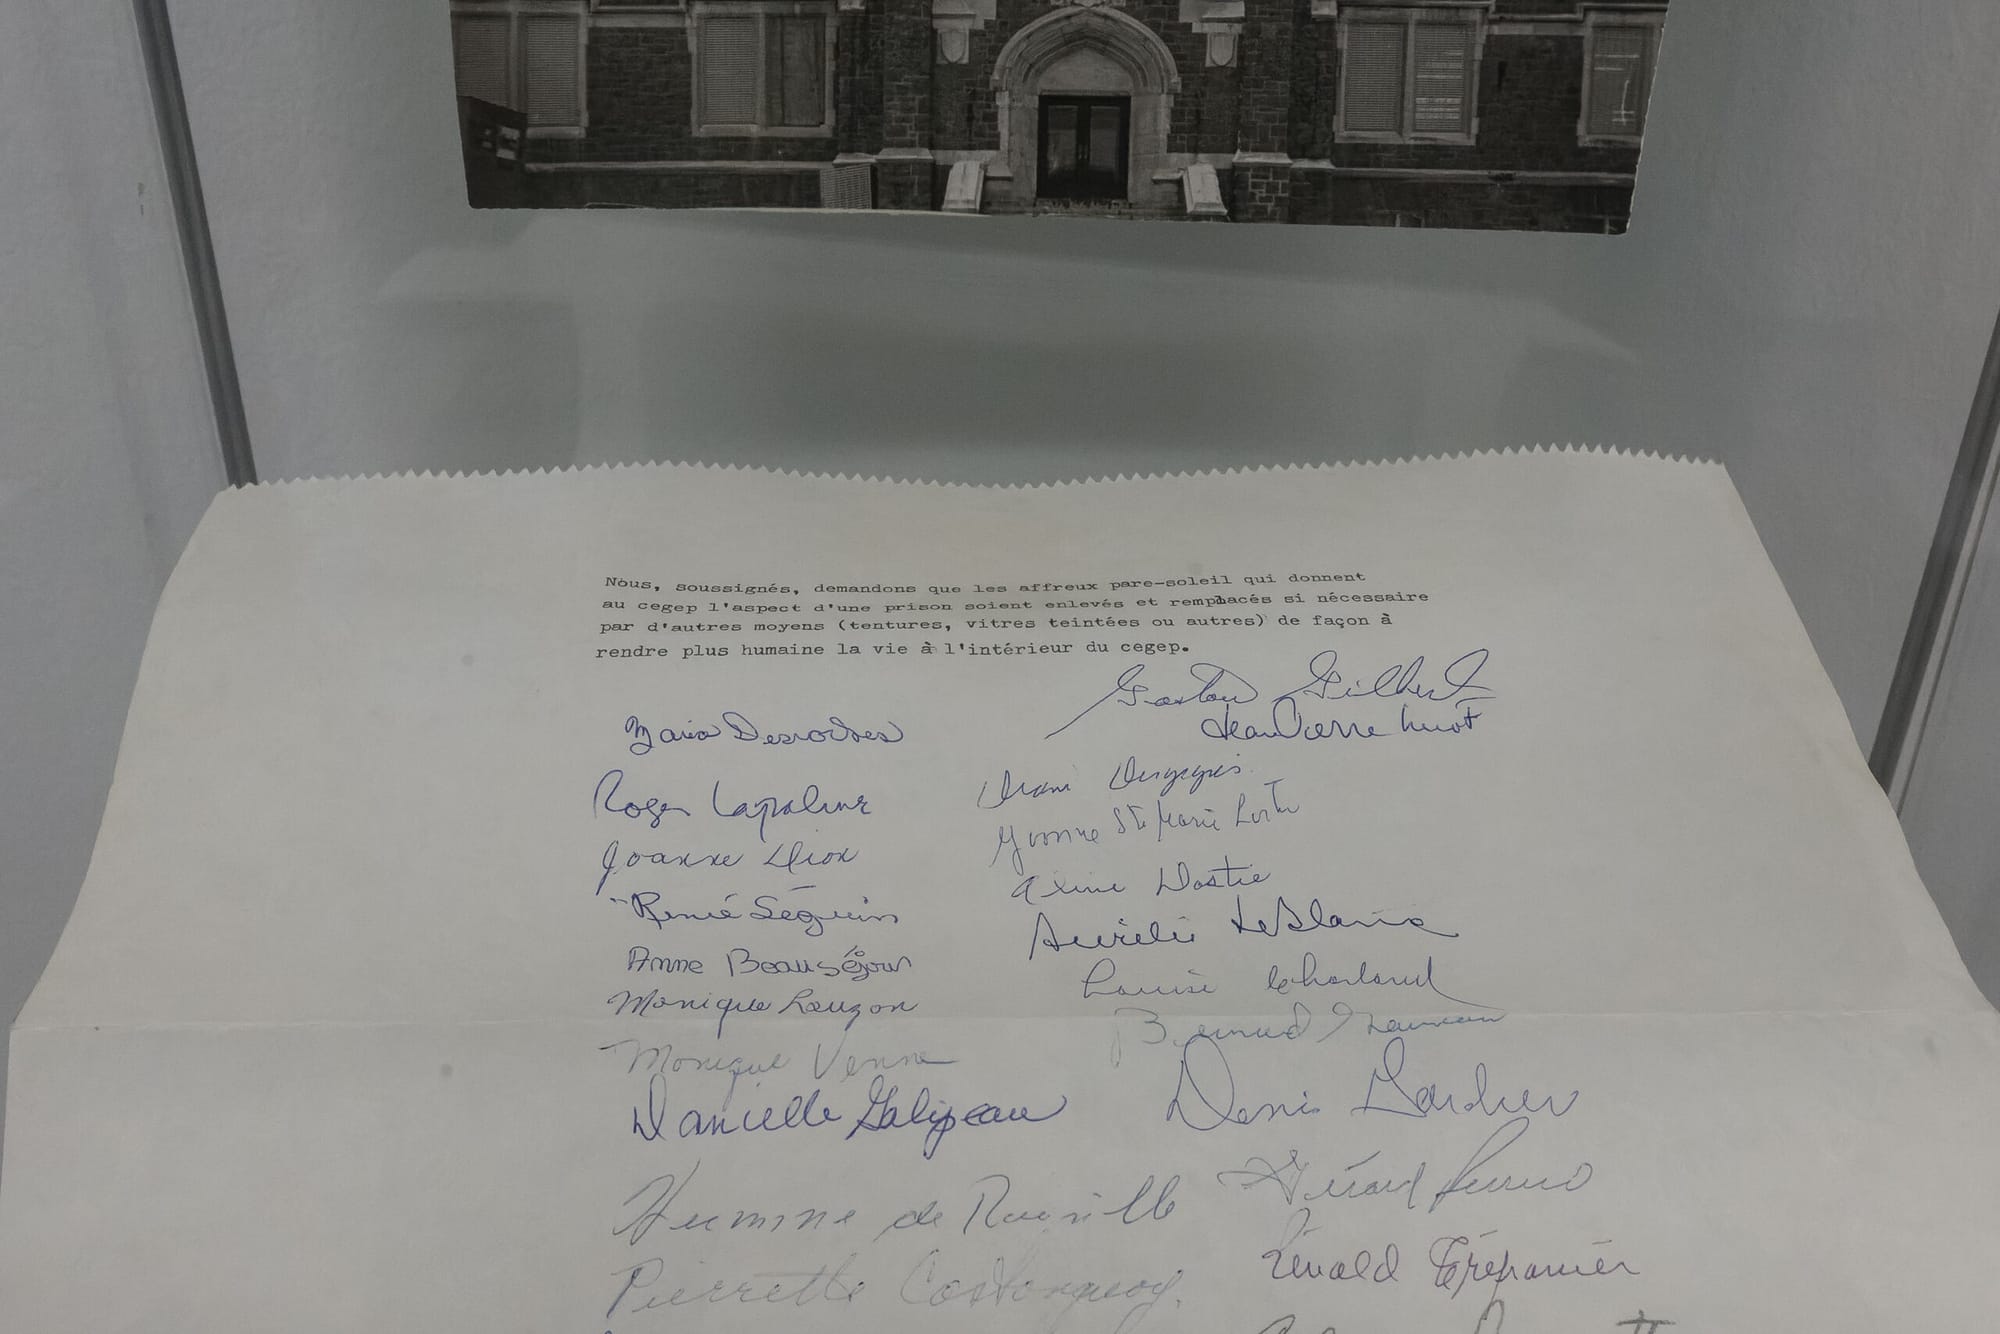 Nous, soussignés, demandons que les affreux pare-soleil qui donnent
au cegep l'aspect d'une prison soient enlevés et remplacés si nécessaire
par d'autres moyens (tentures, vitres teintées ou autres) de façon à
rendre plus humaine la vie à l'intérieur du cegep.
Gaston Gilbert
Desroches
Jean Pierre Huot
Roger Lapalme
Joanne Dion
Yvonne Ste Marie
René Séguin
Aline Dostie
Anne Beauséjour
Aurélie LeBlanc
Monique Lauzon
Louise Charland
Monique Venne
Bernard
Danielle Galipeau
Denis
de Rouville
Gérard
Pierrette Castonguay
Rénald Trépanier